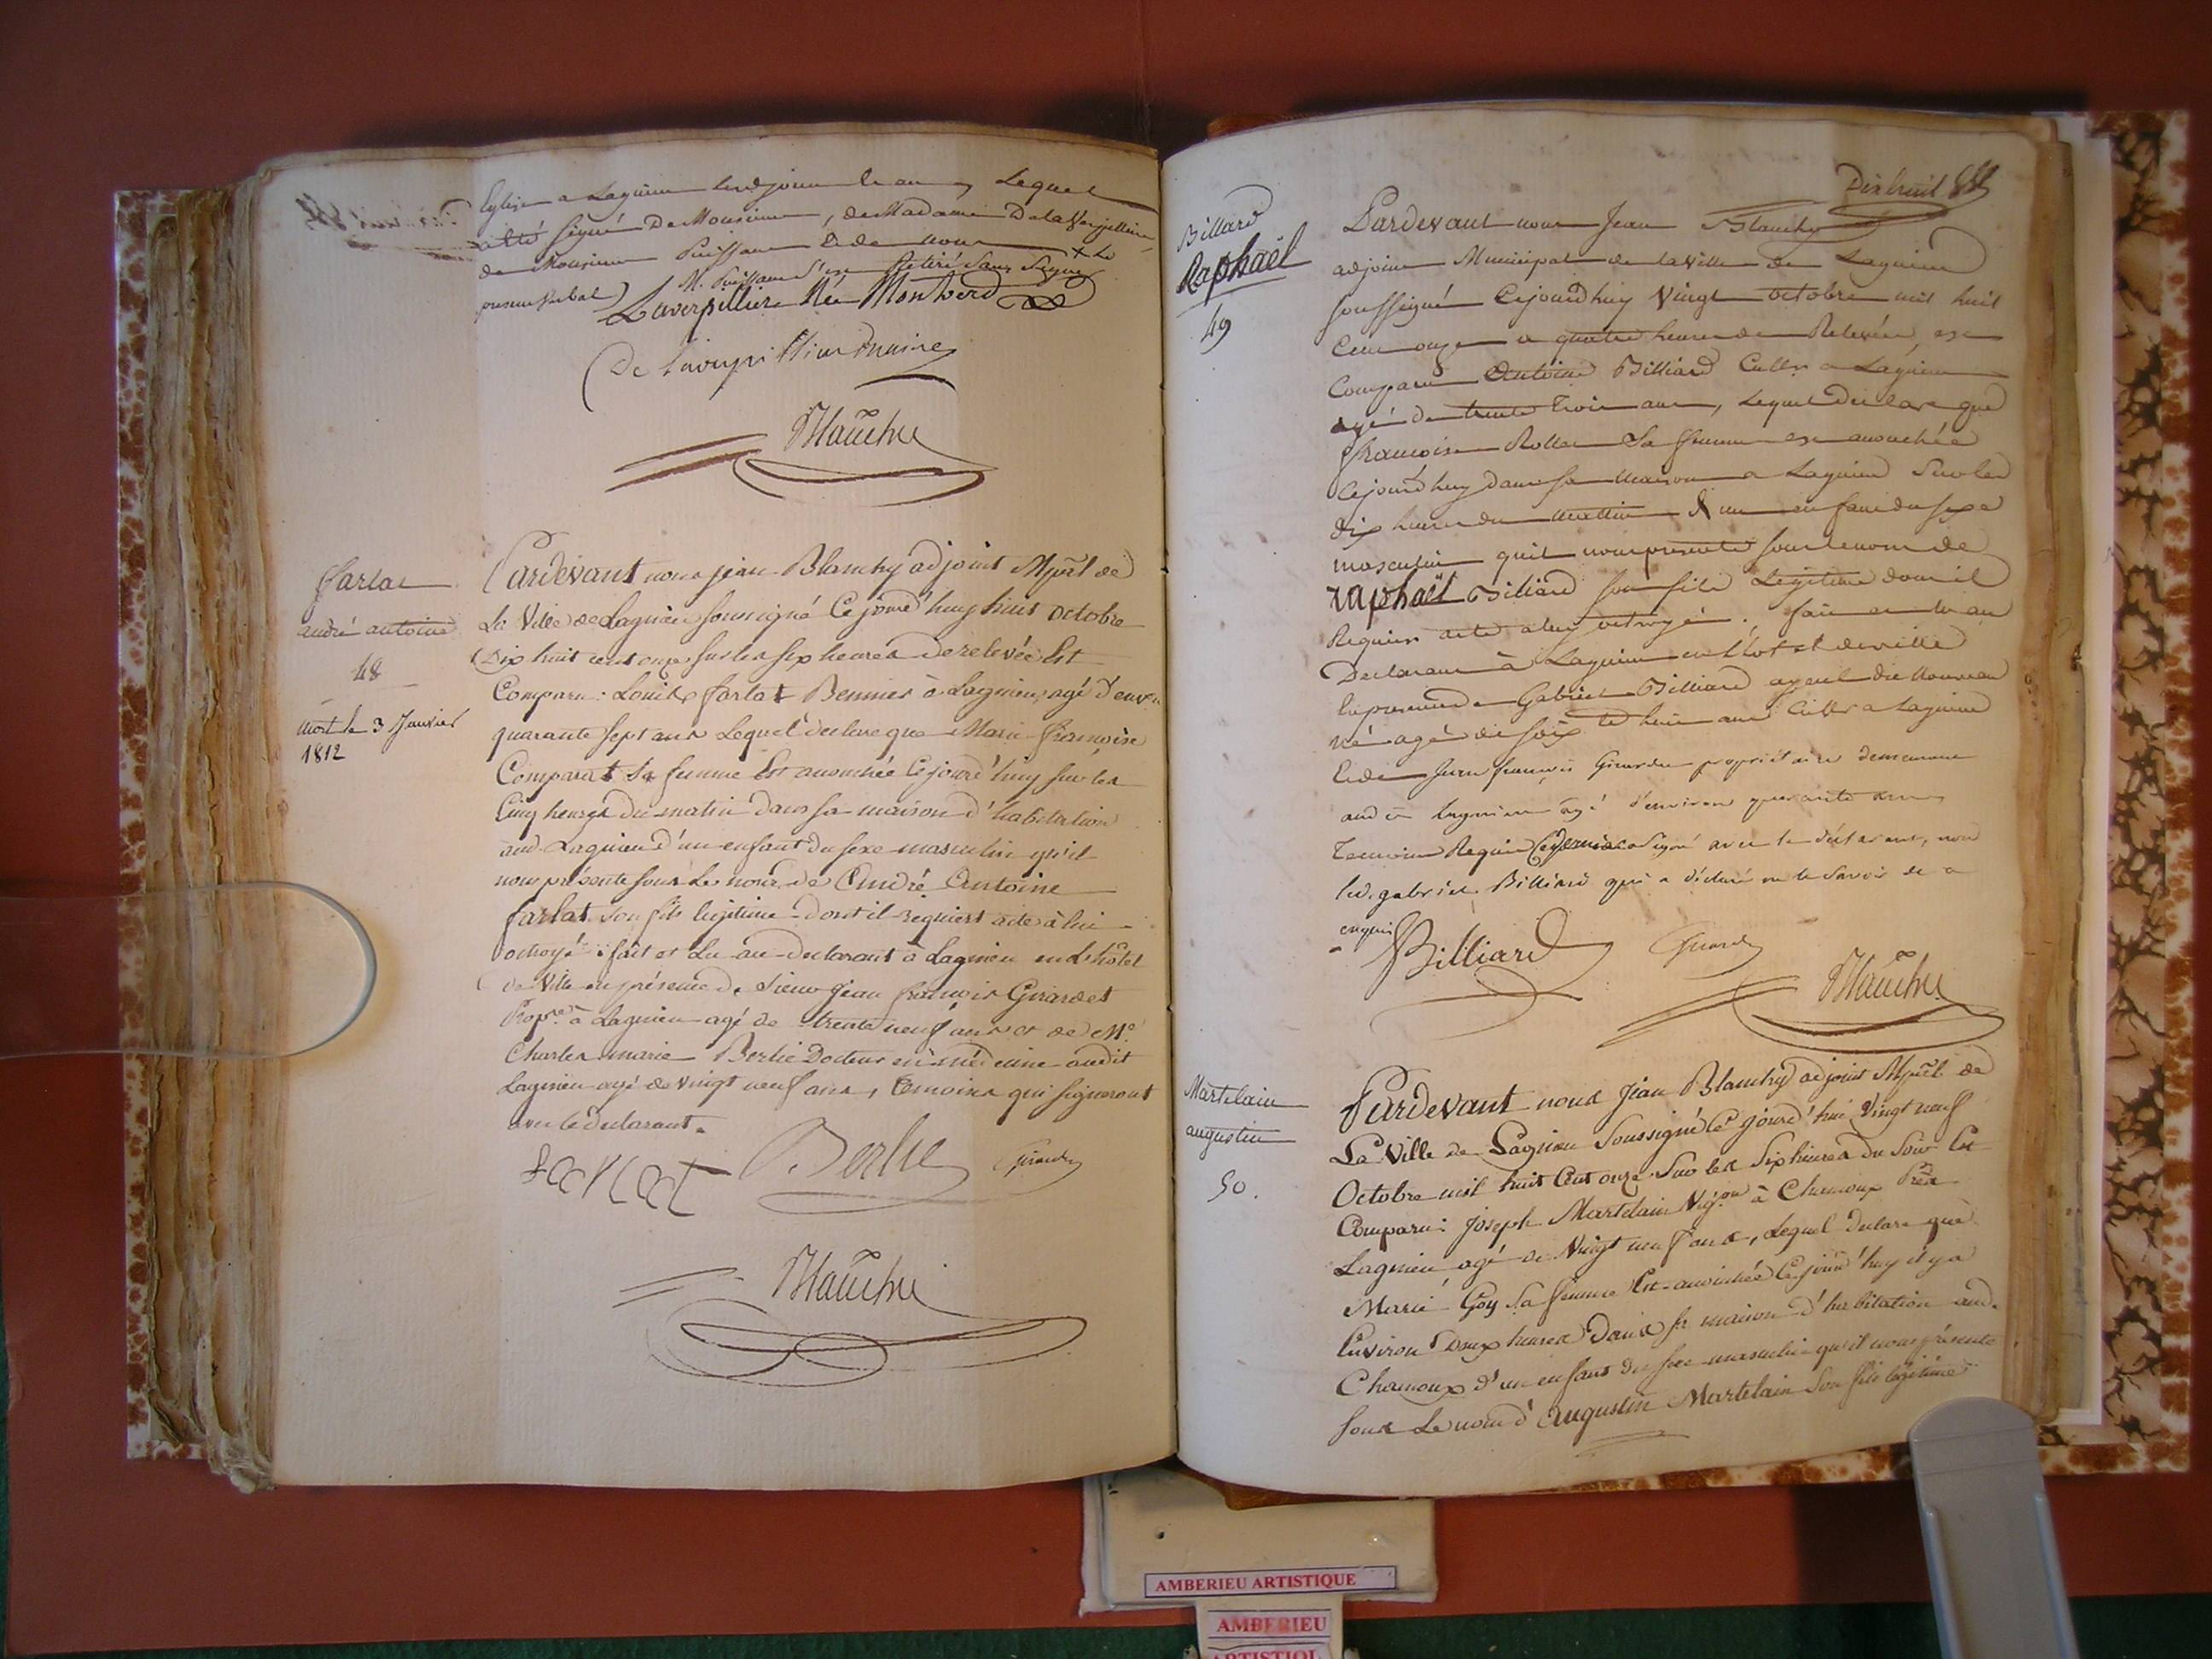 Eglise a Lagnieu led. jour le an Lequel
acte signé De Monsieur, de Madame Delaverpilliere
de Monsieur Puissant & de nous
M. Puissant s'est Retiré sans signer
Laverpilliere Née Montverd
De Laverpilliere maire
Blanchy
farlat
andré antoine
48
mort le 3 Janvier
1812
Pardevant nous jean Blanchy adjoint Mpal de
La Ville de Lagnieu soussigné Ce jourd'huy huit octobre
Dix huit cent onze sur les six heures de relevée Est
Comparu: Louis farlat Bennier à Lagnieu, agé d'envn
quarante sept ans Lequel declare que Marie françoise
Comparat Sa femme Est accouchée Ce jourd'huy sur les
Cinq heures du matin dans sa maison d'habitation
aud. Lagnieu d'un enfant du sexe masculin qu'il
nous présente sous Le nom de André Antoine
farlat son fils legitime dont il requiert acte à lui
octroyé. fait et Lu au declarant à Lagnieu en L'hôtel
de Ville en présence de Sieur Jean françois Girardet
Propre. à Lagnieu agé de trente neuf ans et de Me.
Charles marie Berlie Docteur en médecine audit
Lagnieu agé de vingt neuf ans, Temoins qui signeront
avec le declarant.
farlat Berlie Girardet
Blanchy
Dix huit
Billard
Raphaël
49
Pardevant nous Jean Blanchy
adjoint Municipal de la Ville de Lagnieu
soussigné Cejourdhuy Vingt octobre mil huit
Cent onze a quatre heures de Relevée, est
Comparu Antoine Billiard Cultr a Lagnieu
agé de trente trois ans, Lequel declare que
françoise Rollet Sa femme est accouchée
Cejourdhuy dans sa maison a Lagnieu Sur les
dix heures du matin d'un enfant du sexe
masculin quil nous presente sous le nom de
raphaël Billiard son fils Legitime dont il
Requier acte a luy octroyé. fait et lu au
Declarant à Lagnieu en l'hotel de ville
En presence de Gabriel Billiard ayeul du Nouveau
né agé de soixte huit ans Cultr a Lagnieu
Et de Jean françois Girardet propriétaire demeurant
aud. Lagnieu agé d'environ quarante ans
Temoins Requis Ce dernier a Signé avec le déclarant, non
led. gabriel Billiard qui a déclaré ne le savoir de ce
enquis
Billiard Girardet
Blanchy
Martelain
augustin
50.
Pardevant nous Jean Blanchy adjoint Mpal de
La Ville de Lagnieu Soussigné Ce jourd'hui Vingt neuf
Octobre mil huit Cent onze Sur les Six heures du Soir Est
Comparu: Joseph Martelain Vig.on à Chamoux Près
Lagnieu agé de Vingt neuf ans, Lequel declare que
Marie Goy Sa femme Est accouchée Ce jourd'huy il y a
Environ Deux heures Dans sa maison d'habitation aud.
Chamoux d'un enfant du sexe masculin qu'il nous présente
sous Le nom d'Augustin Martelain Son fils légitime
AMBERIEU ARTISTIQUE
AMBERIEU
ARTISTIQUE